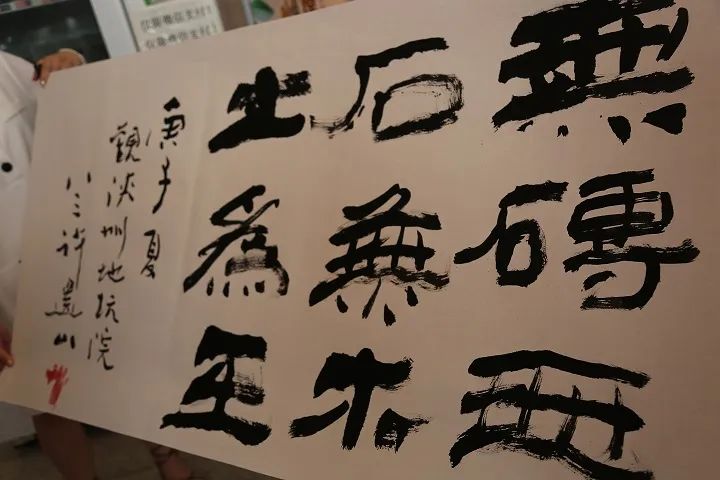 無磚無
石無木
土為王
庚子夏
觀陝州地坑院
八三許還山